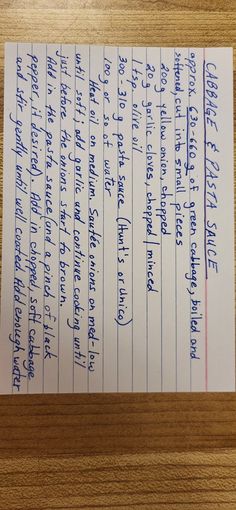 CABBAGE & PASTA SAUCE
approx. 630-660 g of green cabbage, boiled and
softened, cut into small pieces
200 g yellow onion, chopped
20 g garlic cloves, chopped / minced
1 tsp olive oil
300-310 g pasta sauce (Hunt's or Unico)
100 g or so of water
Heat oil on medium. Sautée onions on med-low
until soft; add garlic and continue cooking until
just before the onions start to brown.
Add in the pasta sauce (and a pinch of black
pepper, if desired). Add in chopped, soft cabbage
and stir gently until well coated. Add enough water